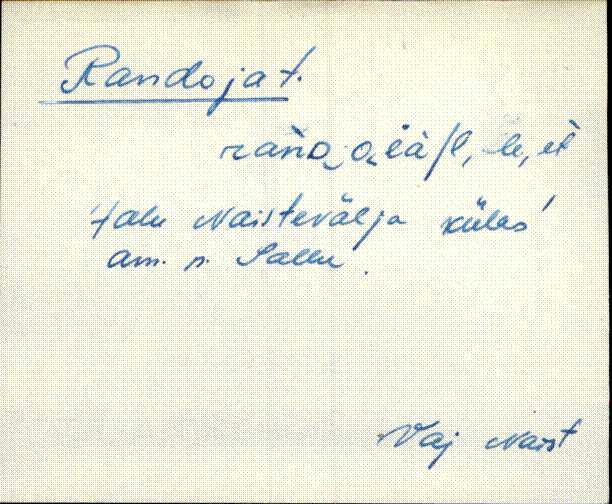 Randoja t.
rańd̥_o̭ià/l, -le, -ĕt
'talu Naistevälja külas'
am. n. Sallu.
Vaj Naist